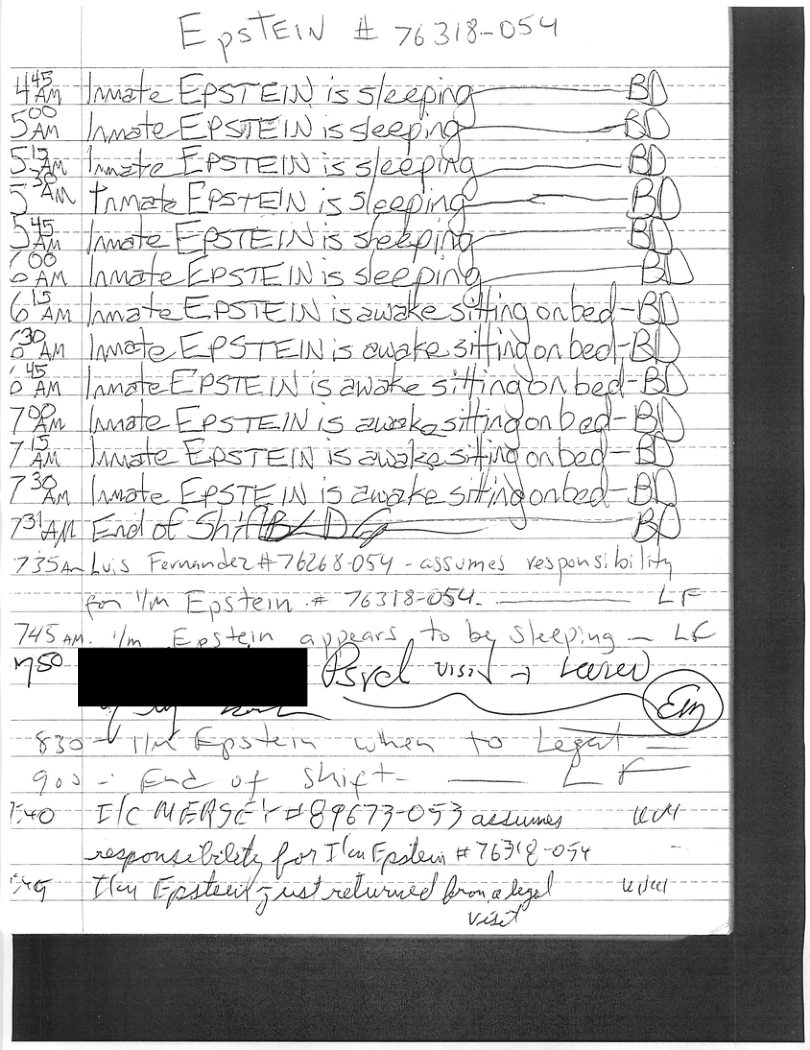 EpSTEIN # 76318-054
4 45 AM Inmate EPSTEIN is sleeping BD
5 00 AM Inmate EPSTEIN is sleeping BD
5 15 AM Inmate EPSTEIN is sleeping BD
5 30 AM Inmate EPSTEIN is sleeping BD
5 45 AM Inmate EPSTEIN is sleeping BD
6 00 AM Inmate EPSTEIN is sleeping BD
6 15 AM Inmate EPSTEIN is awake sitting on bed - BD
6 30 AM Inmate EPSTEIN is awake sitting on bed - BD
6 45 AM Inmate EPSTEIN is awake sitting on bed - BD
7 00 AM Inmate EPSTEIN is awake sitting on bed - BD
7 15 AM Inmate EPSTEIN is awake sitting on bed - BD
7 30 AM Inmate EPSTEIN is awake sitting on bed - BD
7 31 AM End of Shift BD
735 AM Luis Fernandez # 76268-054 - assumes responsibility
for I/m Epstein # 76318-054. LF
745 AM. I/m Epstein appears to be sleeping - LF
750 Psych visit
830 - I/m Epstein when to Legal
900 - End of Shift - LF
I/C MERSEY # 89673-053 assumes
responsibility for I/m Epstein # 76318-054
I/m Epstein just returned from a legal
visit